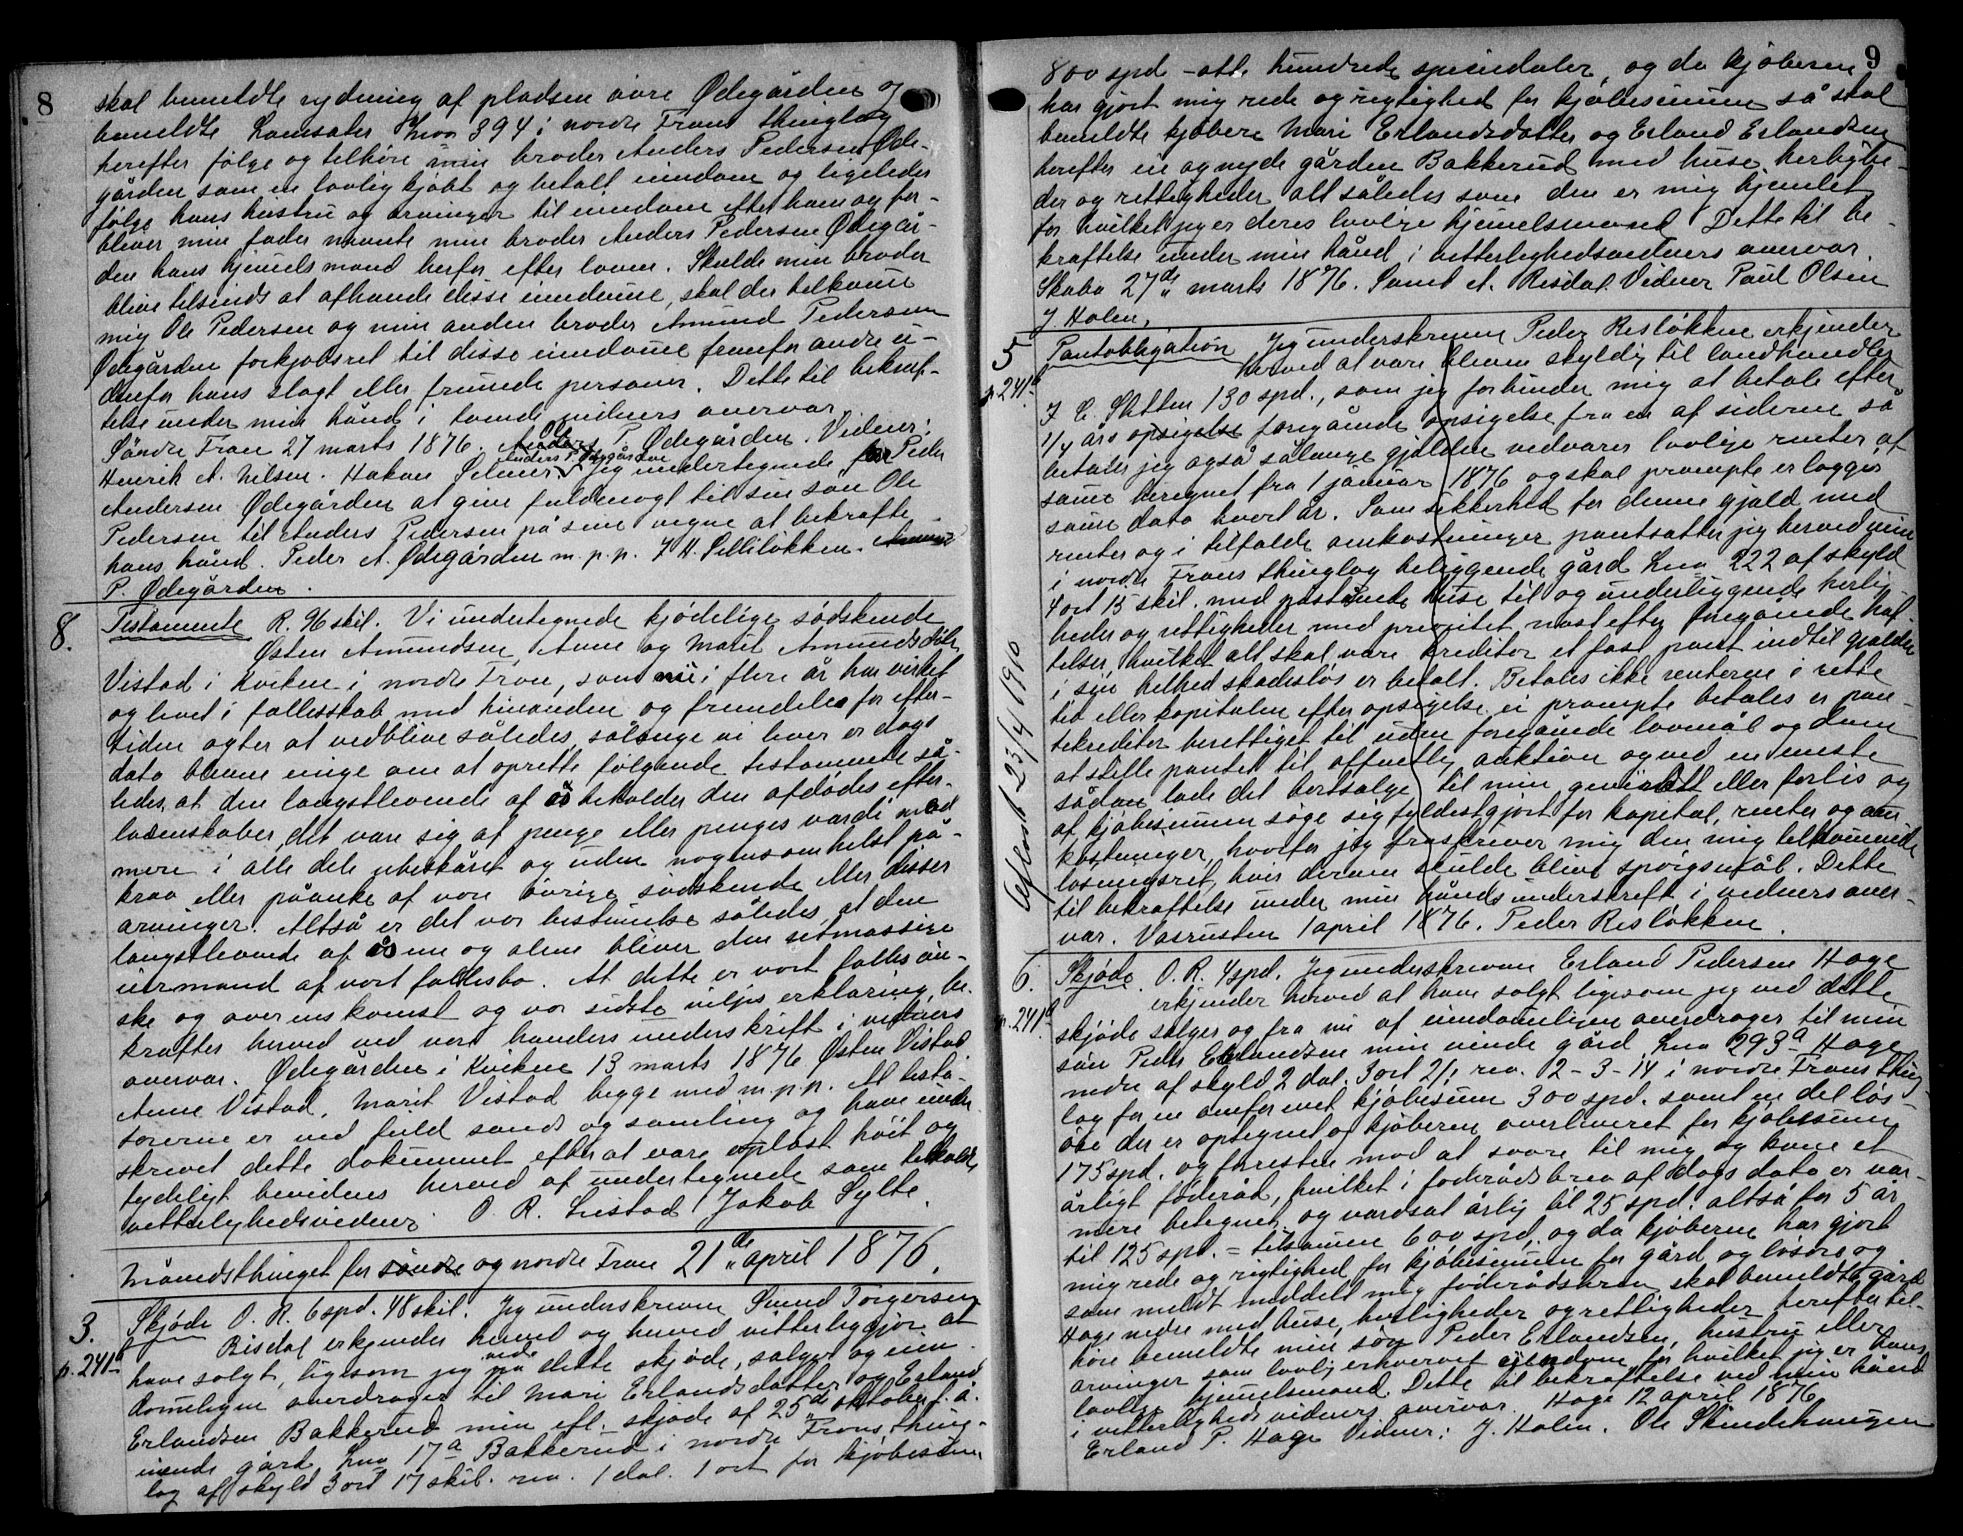 8
skal bemeldte rydning af pladsen øvre Ødegården og
bemeldte Lønsæter Lno 394 i nordre Frons thinglag
herefter følge og tilhøre min broder Anders Pedersen Øde-
gården som en lovlig kjøbt og betalt eiendom og ligeledes
følge hans hustru og arvinger til eiendom efter ham og for-
bliver min fader nævnte min broder Anders Pedersen Ødegår-
den hans hjemmelsmand herfor efter loven. Skulde min broder
blive tilsinds at afhænde disse eiendomme, skal det tilkomme
mig Ole Pedersen og min anden broder Amund Pedersen
Ødegården forkjøbsret til disse eiendomme fremfor andre u-
denfor hans slægt eller fremmede personer. Dette til bekræf-
telse under min hånd i tvende vidners overvær.
Søndre Fron 27 marts 1876. Ole P. Ødegården. Vidner:
Henrik A. Nilsen. Hakon Selmer. Anders P. Ødegården Jeg undertegnede Peder
Andersen Ødegården at give fuldmagt til sin søn Ole
Pedersen til Anders Pedersen på sine vegne at bekræfte
hans hånd. Peder A. Ødegården m.p.p. J. H. Lilleløkken. Amund
P. Ødegården.
8. Testamente R. 96 skil. Vi undertegnede kjødelige sødskende
Østen Amundsen, Anne og Marit Amundsdøtre
Vistad i Kvikne i nordre Fron, som nu i flere år har virket
og levet i fællesskab med hinanden og fremdeles for efter-
tiden agter at vedblive således, sålænge vi lever er dags
dato blevne enige om at oprette følgende testamente så-
ledes, at den længstlevende af os beholder den afdødes efter-
ladenskaber, det være sig af penge eller penges værdi med
mere i alle dele ubeskåret og uden nogensomhelst på-
krav eller påanke af vore øvrige sødskende eller disses
arvinger. Altså er det vor bestemmelse således, at den
længstlevende af os ene og alene bliver den retmæssige
eiermand af vort fællesbo. At dette er vort fælles øn-
ske og overenskomst og vor sidste viljes erklæring, be-
kræftes herved ved vore hænders underskrift i vidners
overvær. Ødegården i Kvikne 13 marts 1876 Østen Vistad
Anne Vistad, Marit Vistad begge med m.p.p. At testa-
torerne er ved fuld sands og samling og have under-
skrevet dette dokument efter at være oplæst høit og
tydeligt bevidnes herved af undertegnede som tilkaldte
vitterlighedsvidner. O. R. Listad Jakob Sylte.
Månedsthinget for søndre og nordre Fron 21de april 1876.
3. Skjøde O. R. 6 spd. 48 skil. Jeg underskrevne Svend Torgersen
p. 241a Risdal erkjender herved og herved vitterliggjør at
have solgt, ligesom jeg ved dette skjøde, sælger og eien-
domeligen overdrager til Mari Erlandsdatter og Erland
Erlandsen Bakkerud min efl. skjøde af 25de oktober f. å.
eiende gård Lno 17a Bakkerud i nordre Frons thing-
lag af skyld 3 ort 17 skil. rev. 1 dal. 1 ort for kjøbesum
9
800 spd - otte hundrede speciedaler, og da kjøberne
har gjort mig rede og rigtighed for kjøbesummen så skal
bemeldte kjøbere Mari Erlandsdatter og Erland Erlandsen
herefter eie og nyde gården Bakkerud med huse, herlighe-
der og rettigheder alt således som den er mig hjemlet
for hvilket jeg er deres lovlige hjemmelsmand. Dette til be-
kræftelse under min hånd i vitterlighedsvidners overvær.
Skabo 27de marts 1876. Svend A. Risdal Vidner Paul Olsen
J. Holen.
5 Pantobligation Jeg underskrevne Peder Risløkken erkjender
p. 241a herved at være bleven skyldig til landhandler
J. C. Sletten 130 spd., som jeg forbinder mig at betale efter
1/4 års opsigelse foregående opsigelse fra en af siderne så
betaler jeg også sålænge gjælden vedvarer lovlige renter af
samme beregnet fra 1 januar 1876 og skal prompte erlægges
samme dato hvert år. Som sikkerhed for denne gjæld med
renter og i tilfælde omkostninger pantsætter jeg herved min
i nordre Frons thinglag beliggende gård Lno 222 af skyld
4 ort 15 skil. med påstående huse til og underliggende herlig-
heder og rettigheder med prioritet næst efter foregående hæf-
telser, hvilket alt skal være kreditor et fast pant indtil gjælden
i sin helhed skadesløs er betalt. Betales ikke renterne i rette
tid eller kapitalen efter opsigelse ei prompte betales er pan-
tekreditor berettiget til uden foregående lovmål og dom
at stille pantet til offentlig auktion og ved en eneste
sådan lade det bortsælge til min gevindst eller forlis og
af kjøbesummen søge sig fyldestgjort for kapital, renter og om-
kostninger, hvorfor jeg fraskriver mig den mig tilkommende
løsningsret, hvis derom skulde blive spørgsmål. Dette
til bekræftelse under min hånds underskrift i vidners over-
vær. Vasrusten 1 april 1876. Peder Risløkken.
Aflæst 23/4 1910
6. Skjøde. O. R. 4 spd. Jeg underskrevne Erland Pedersen Hage
p. 241a erkjender herved at have solgt ligesom jeg ved dette
skjøde sælger og fra mig af eiendomeligen overdrager til min
søn Peder Erlandsen min eiende gård Lno 293a Hage
nedre af skyld 2 dal. 3 ort 2/1 rev. 2-3-14 i nordre Frons thing-
lag for en omforenet kjøbesum 300 spd. samt en del løs-
øre der er optegnet og kjøberen overleveret for kjøbesum
175 spd. og forresten mod at svare til mig og kone et
årligt føderåd, hvilket i føderådsbrev af dags dato er nær-
mere betegnet og værdsat årlig til 25 spd. altså for 5 år
til 125 spd. = tilsammen 600 spd. og da kjøberne har gjort
mig rede og rigtighed for kjøbesummen for gård og løsøre og
som meldt meddelt mig føderådsbrev skal bemeldte gård
Hage nedre med huse, herligheder og rettigheder herefter til-
høre bemeldte min søn Peder Erlandsen, hustru eller
arvinger som lovlig erhvervet eiendom, for hvilket jeg er hans
lovlige hjemmelsmand. Dette til bekræftelse ved min hånd
i vitterlighedsvidners overvær. Hage 12 april 1876
Erland P. Hage Vidner: J. Holen. Ole Skindehaugen